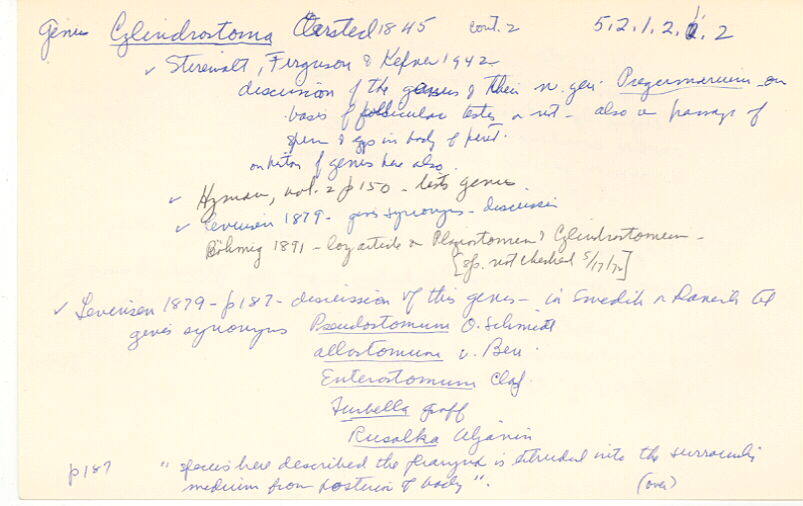 Genus Cylindrostoma Oersted 1845 cont. 2 5.2.1.2.2.2
✓ Sterewalt, Ferguson & Kepner 1942-
discussion of the genus & their n. gen. Pregermarium on
basis of follicular testes or not - also on passage of
sperm & eggs in body of
of genus here also
✓ Hyman, vol. 2 p 150 - lists genus.
✓ Levinsen 1879 - gives synonyms - discussion
Böhmig 1891 - long article on Plagiostomen & Cylindrostomen -
[sp. not checked 5/17/72]
✓ Levinsen 1879 - p 187 - discussion of this genus - in Swedish or Danish
gives synonyms Pseudostomum O. Schmidt
Allostomum v. Ben.
Enterostomum Clap.
Turbella Graff
Rusalka Uljanin
p 187 "species here described the pharynx is extruded into the surrounding
medium from posterior of body". (over)